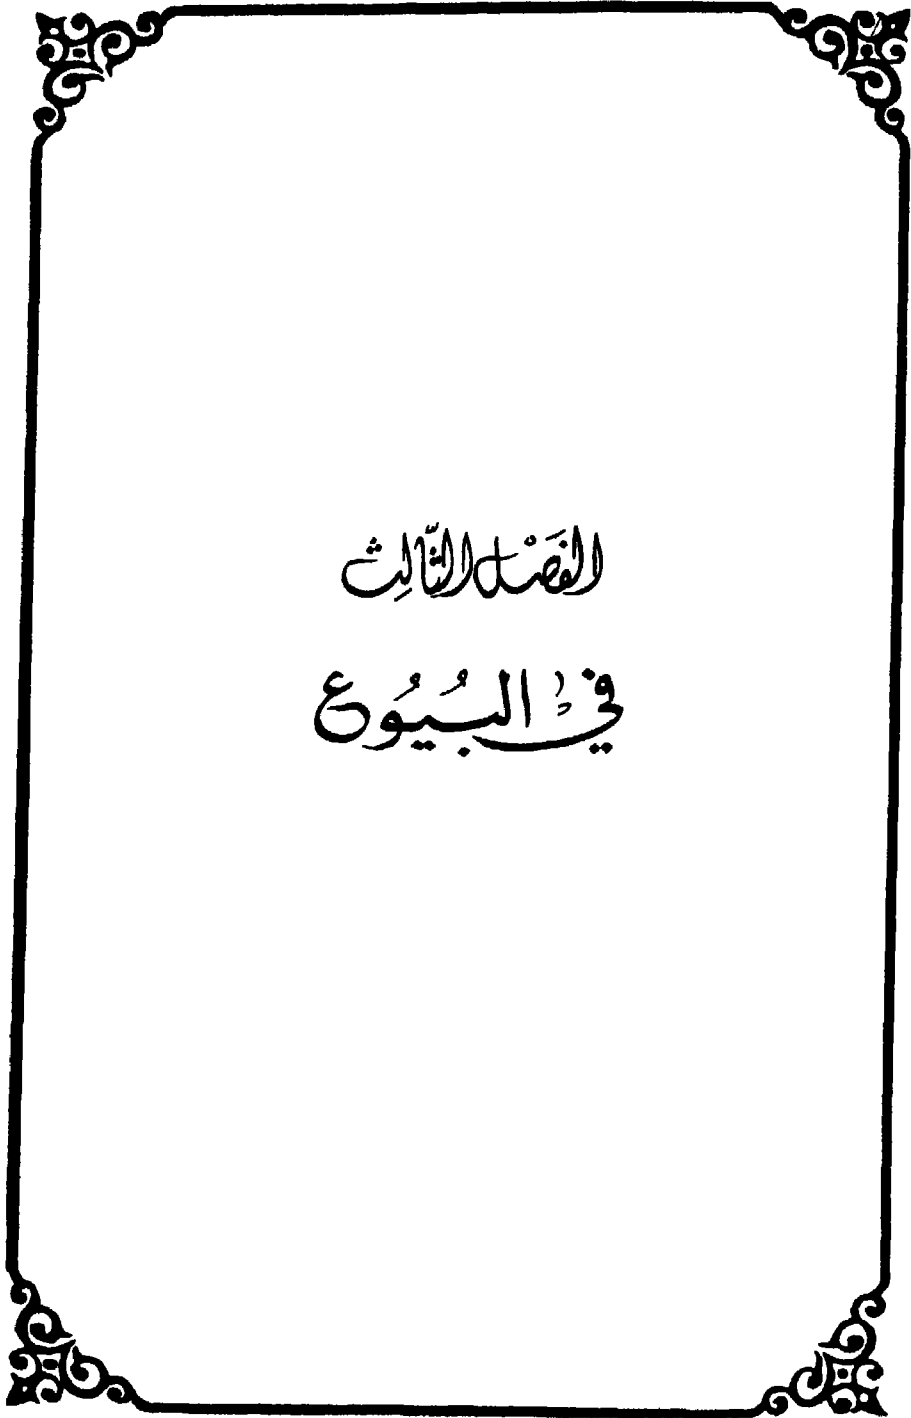 الفَصْل الثَّالِث
في البُيُوع